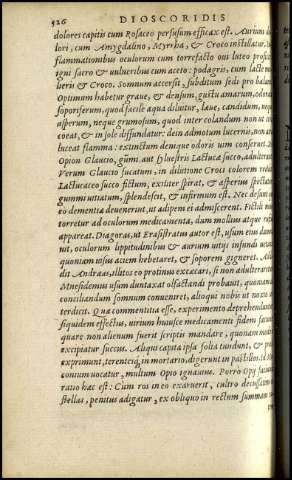 526 DIOSCORIDIS
dolores capitis cum Rosaceo perfusum efficax est. Aurium do
lori, cum Amygdalino, Myrrha, & Croco instillatur. In
flammationibus oculorum cum torrefacto oui luteo prosit:
igni sacro & vulneribus cum aceto: podagris, cum lacte mu
lieris & Croco. Somnum accersit, subditum sedi pro balano.
Optimum habetur graue, & densum, gustu amarum, odore
soporiferum, quod facile aqua diluitur, laeue, candidum, non
asperum, neque grumosum, quod inter colandum non ut cera
coeat, & in sole diffundatur: dein admotum lucernis, non atra
luceat flamma: extinctum demque odoris uim conseruet.
Opion Glaucio, gumi, aut sylvestris Lactucæ succo, adulterant.
Verum Glaucio fucatum, in dilutione Croci colorem reddit:
Lactucaceo succo fictum, exiliter spirat, & asperius spectatur:
gummi uitiatum, splendescit, & infirmum est. Nec desunt qui
eo dementiæ deuenerint, ut adipem ei admiscerent. Fictili nouo
torretur ad oculorum medicamenta, dum mollius atque rufius
appareat. Diagoras, ut Erasistratus autor est, usum eius damna
uit, oculorum lippitudinibus & aurium utiq́; infundi uetans,
quoniam uisus aciem hebetaret, & soporem gigneret. Addi
dit Andreas, illitos eo protinus excæcari, si non adulteraretur.
Mnesidemus usum duntaxat olfactandi probauit, quoniam ad
conciliandum somnum conueniret, alioqui nobis ut noxio in
terdicit. Quæ commentitia esse, experimento deprehenduntur,
siquidem effectus, uirium huiusce medicamenti fidem faciunt:
quare non alienum fuerit scriptis mandare, quonam modo
excipiatur succus. Aliqui capita ipsa folia tundunt, & prælo
exprimunt, terentesq́; in mortario, digerunt in pastillos. id Me
conium uocatur, multum Opio ignauius. Porrò Opij faciendi
ratio hæc est: Cum ros in eo exaruerit, cultro decussatim
stellas, penitus adigatur, ex obliquo in rectum summam